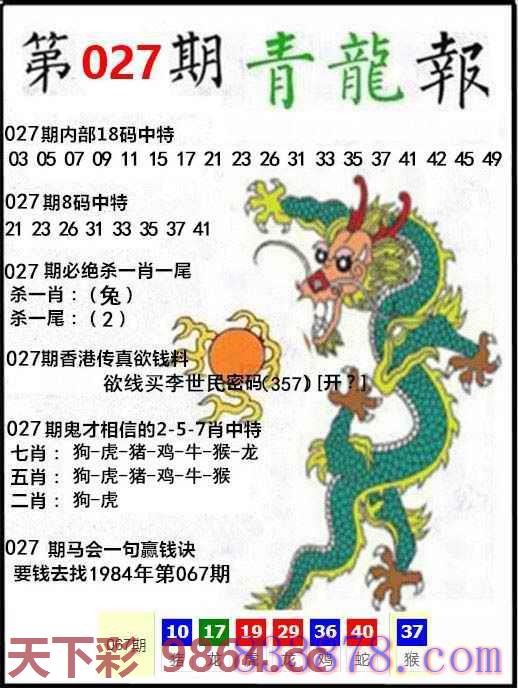 第027期青龍報
027期内部18码中特
03 05 07 09 11 15 17 21 23 26 31 33 35 37 41 42 45 49
027期8码中特
21 23 26 31 33 35 37 41
027期必绝杀一肖一尾
杀一肖：(兔)
杀一尾：(2)
027期香港传真欲钱料
欲线买李世民密码(357)[开?]
027期鬼才相信的2-5-7肖中特
七肖：狗-虎-猪-鸡-牛-猴-龙
五肖：狗-虎-猪-鸡-牛-猴
二肖：狗-虎
027期马会一句赢钱诀
要钱去找1984年第067期
067期 10 17 19 29 36 40 37
猪 龙 虎 龙 鸡 蛇 猴
天下彩 9864.cc